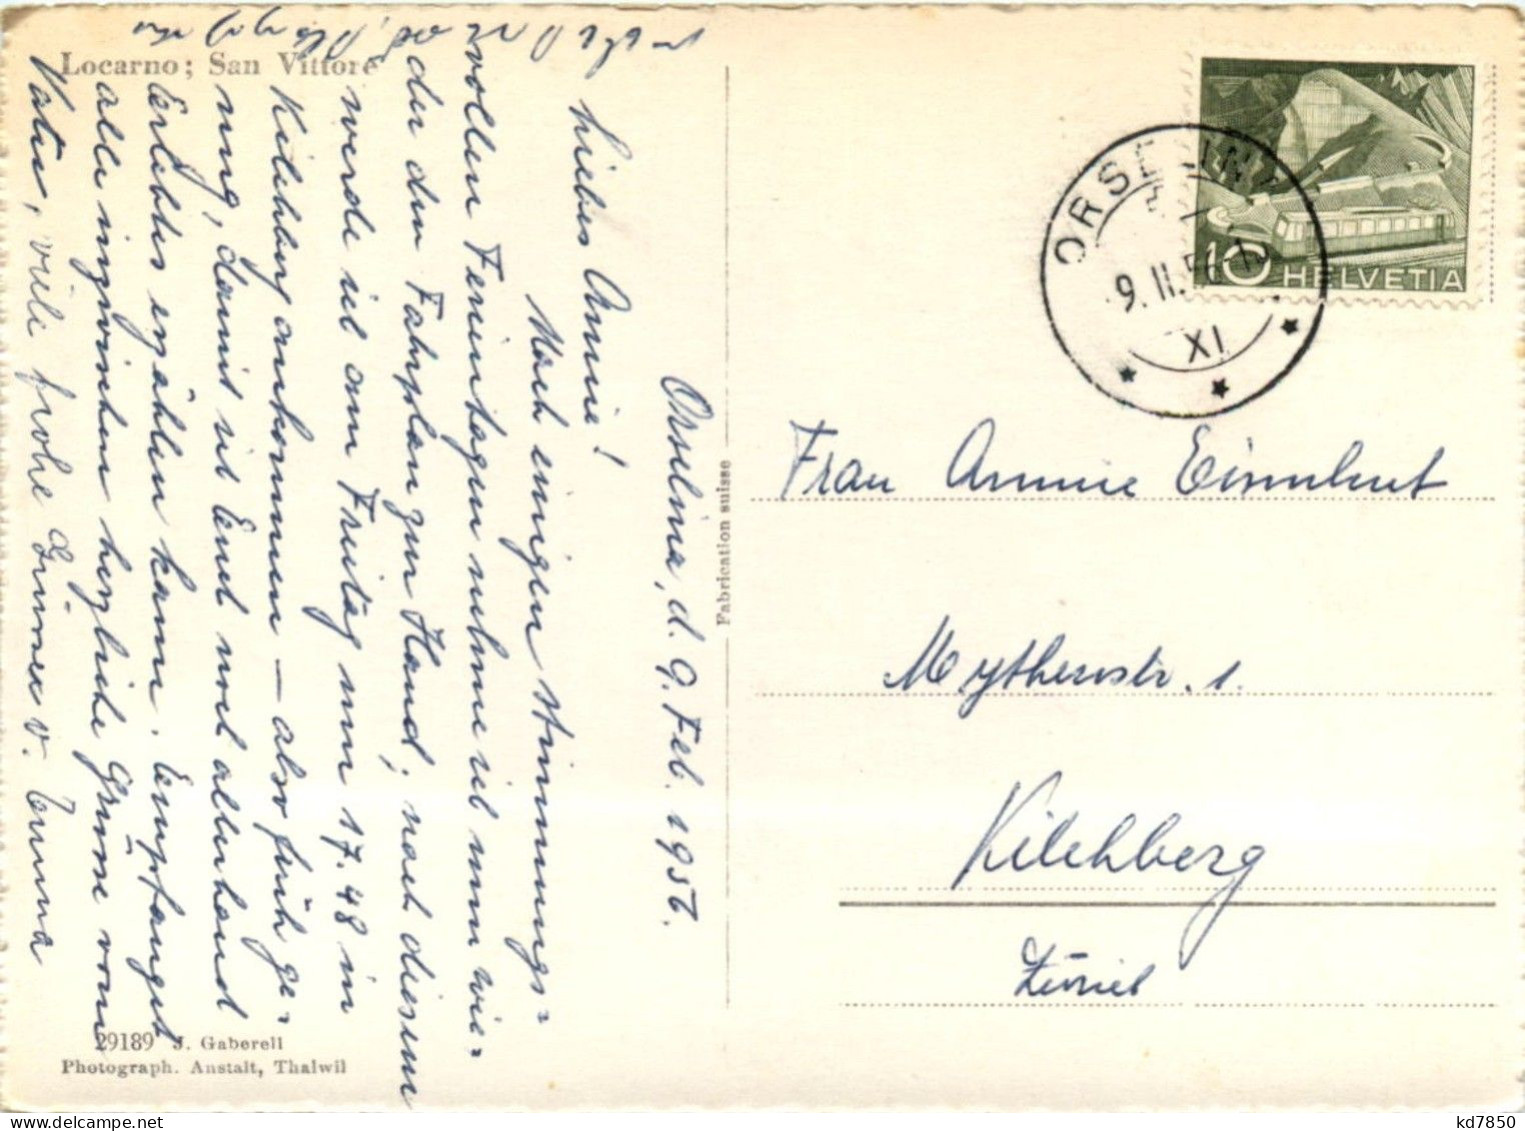 Locarno; San Vittore
Orselina, d. 9. Feb. 1956.
Liebes Annie!
Nach einigen stimmungs=
vollen Ferientagen nehme ich nun wie=
der den Fahrplan zur Hand; nach diesem
werde ich am Freitag um 17.48 in
Kilchberg ankommen – also früh ge=
nug, damit ich Euch noch allerhand
Erlebtes erzählen kann. Empfanget
alle inzwischen herzliche Grüsse vom
Vati, viele frohe Grüsse v. Emma
29189 J. Gaberell
Photograph. Anstalt, Thalwil
Fabrication suisse
10 HELVETIA
ORSELINA
9.II.56
XI
Frau Annie Eisenhut
Mythenstr. 1.
Kilchberg
Zürich
kd7850